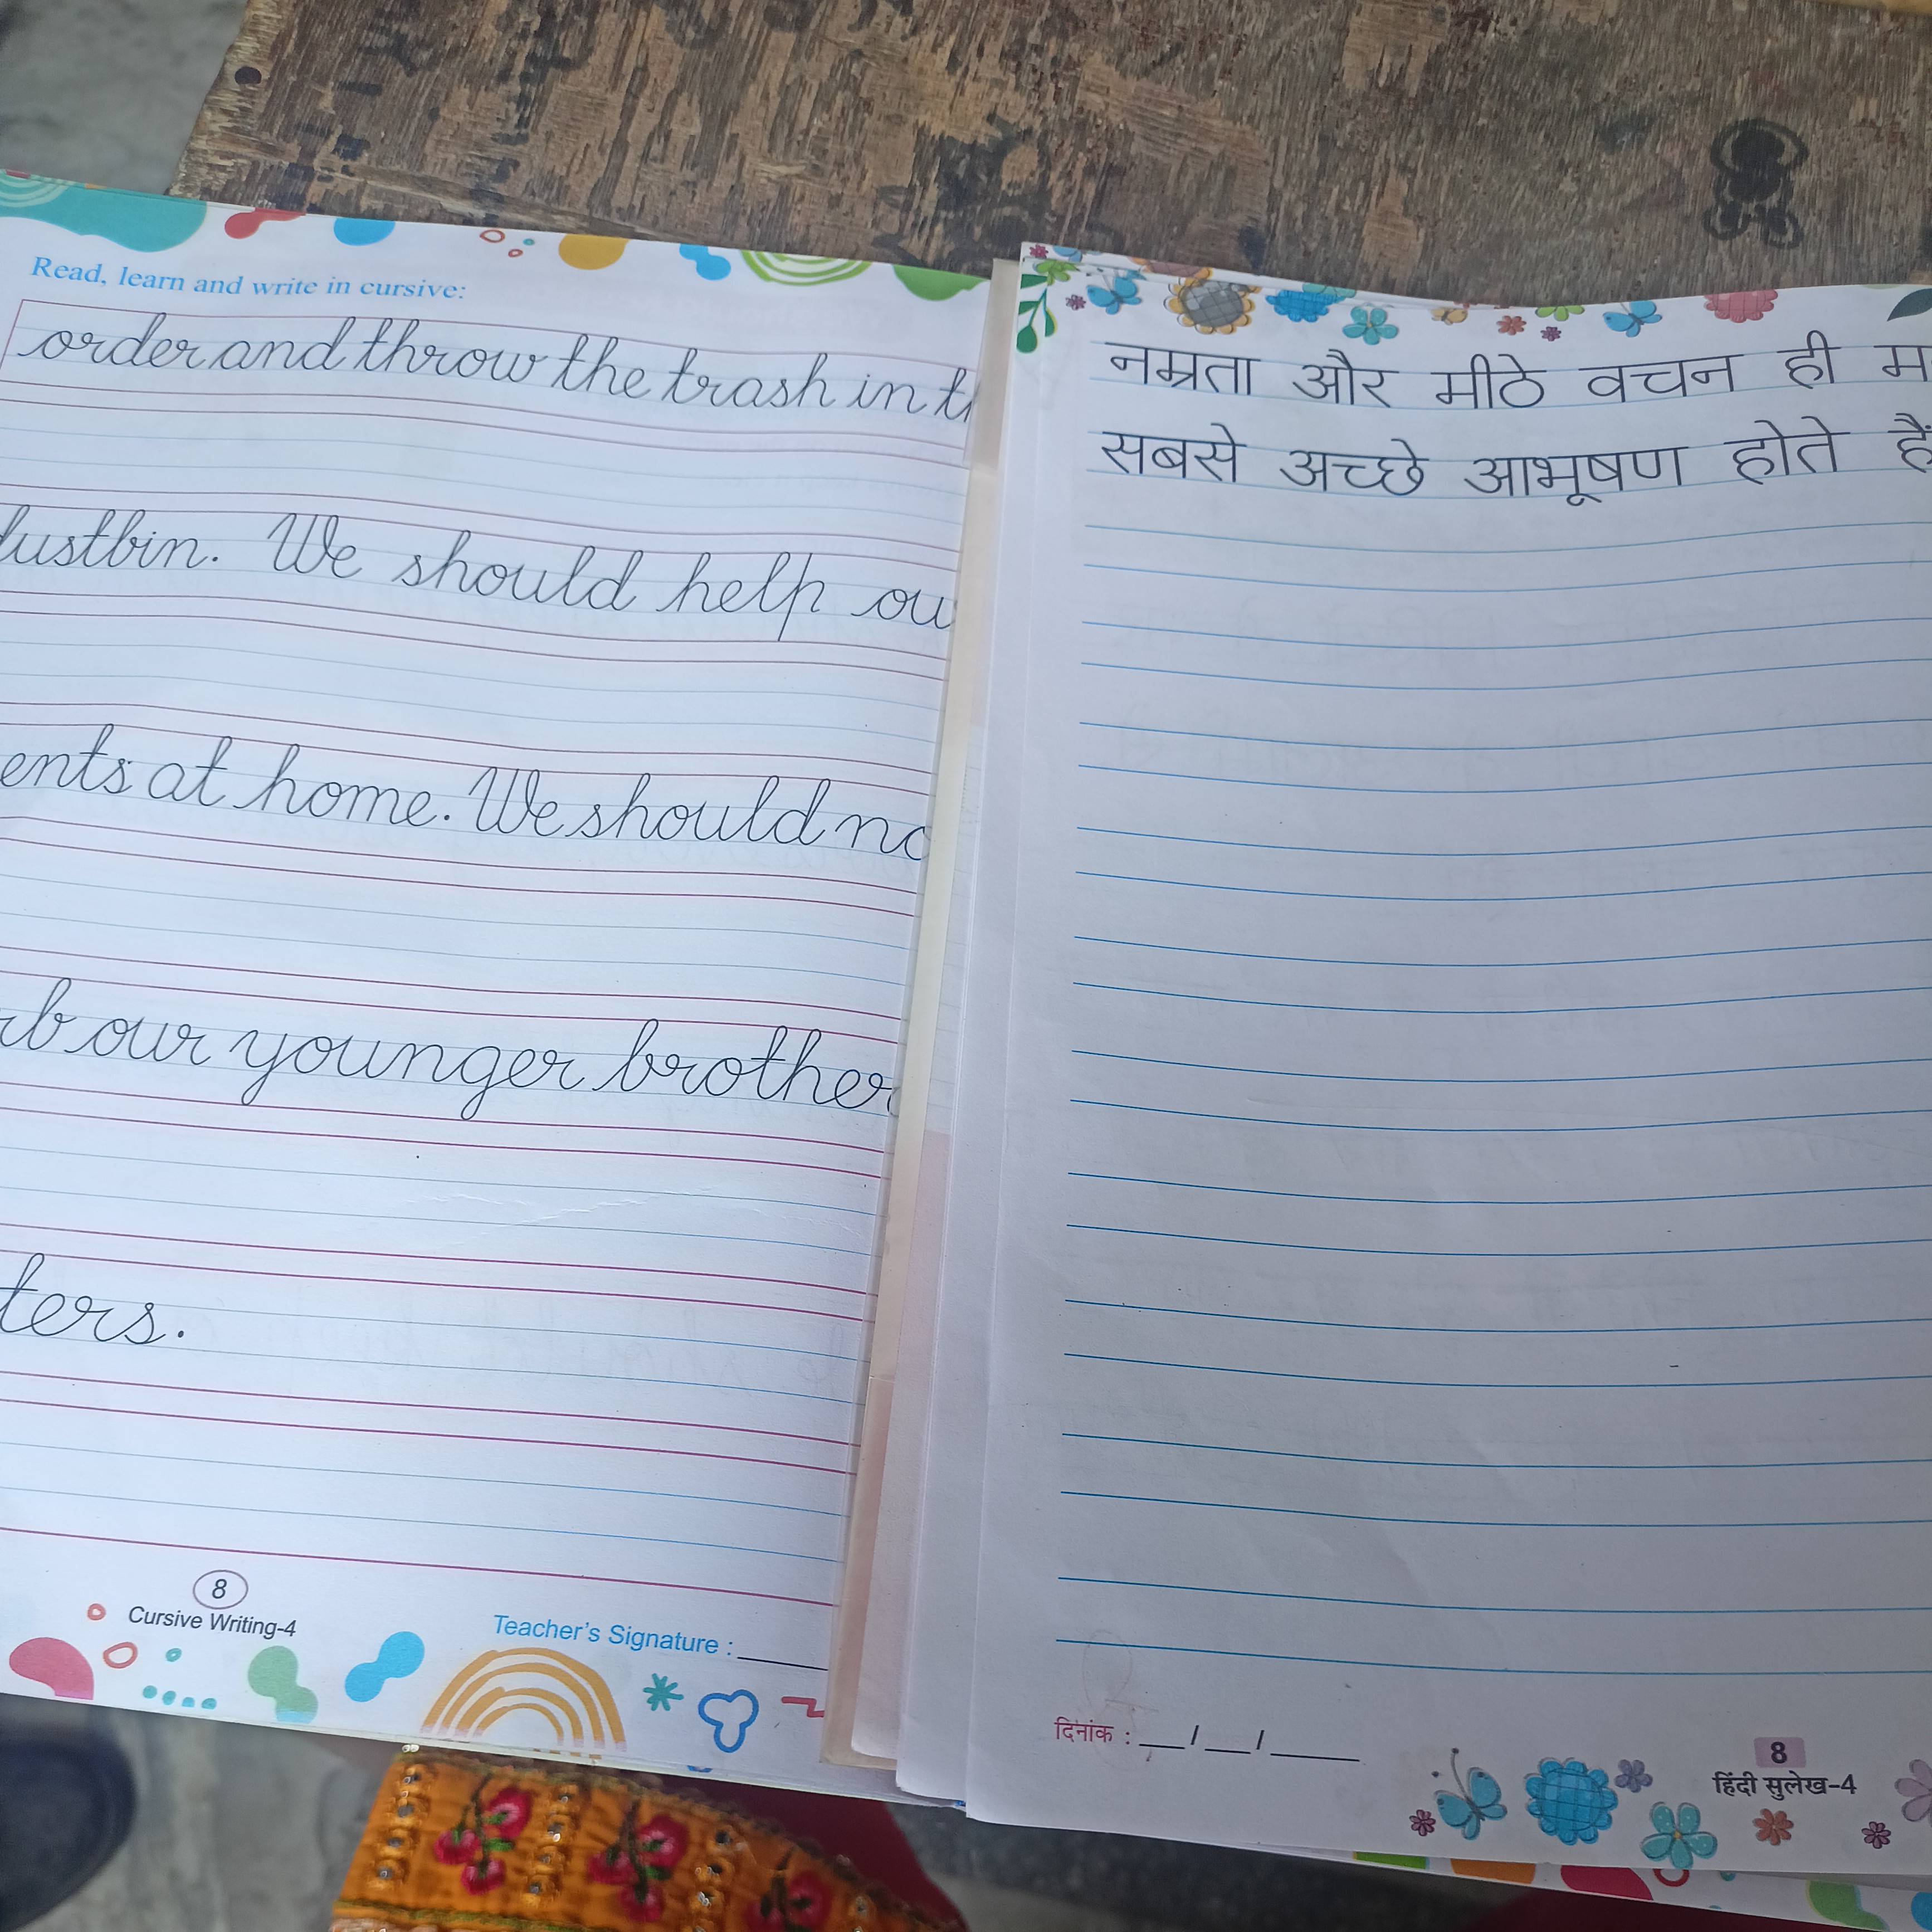 Read, learn and write in cursive:
order and throw the trash in
We should help
at home. We should
our younger brother
8
Cursive Writing-4
Teacher's Signature :
नम्रता और मीठे वचन ही
सबसे अच्छे आभूषण होते हैं
दिनांक : __/__/____
8
हिंदी सुलेख-4